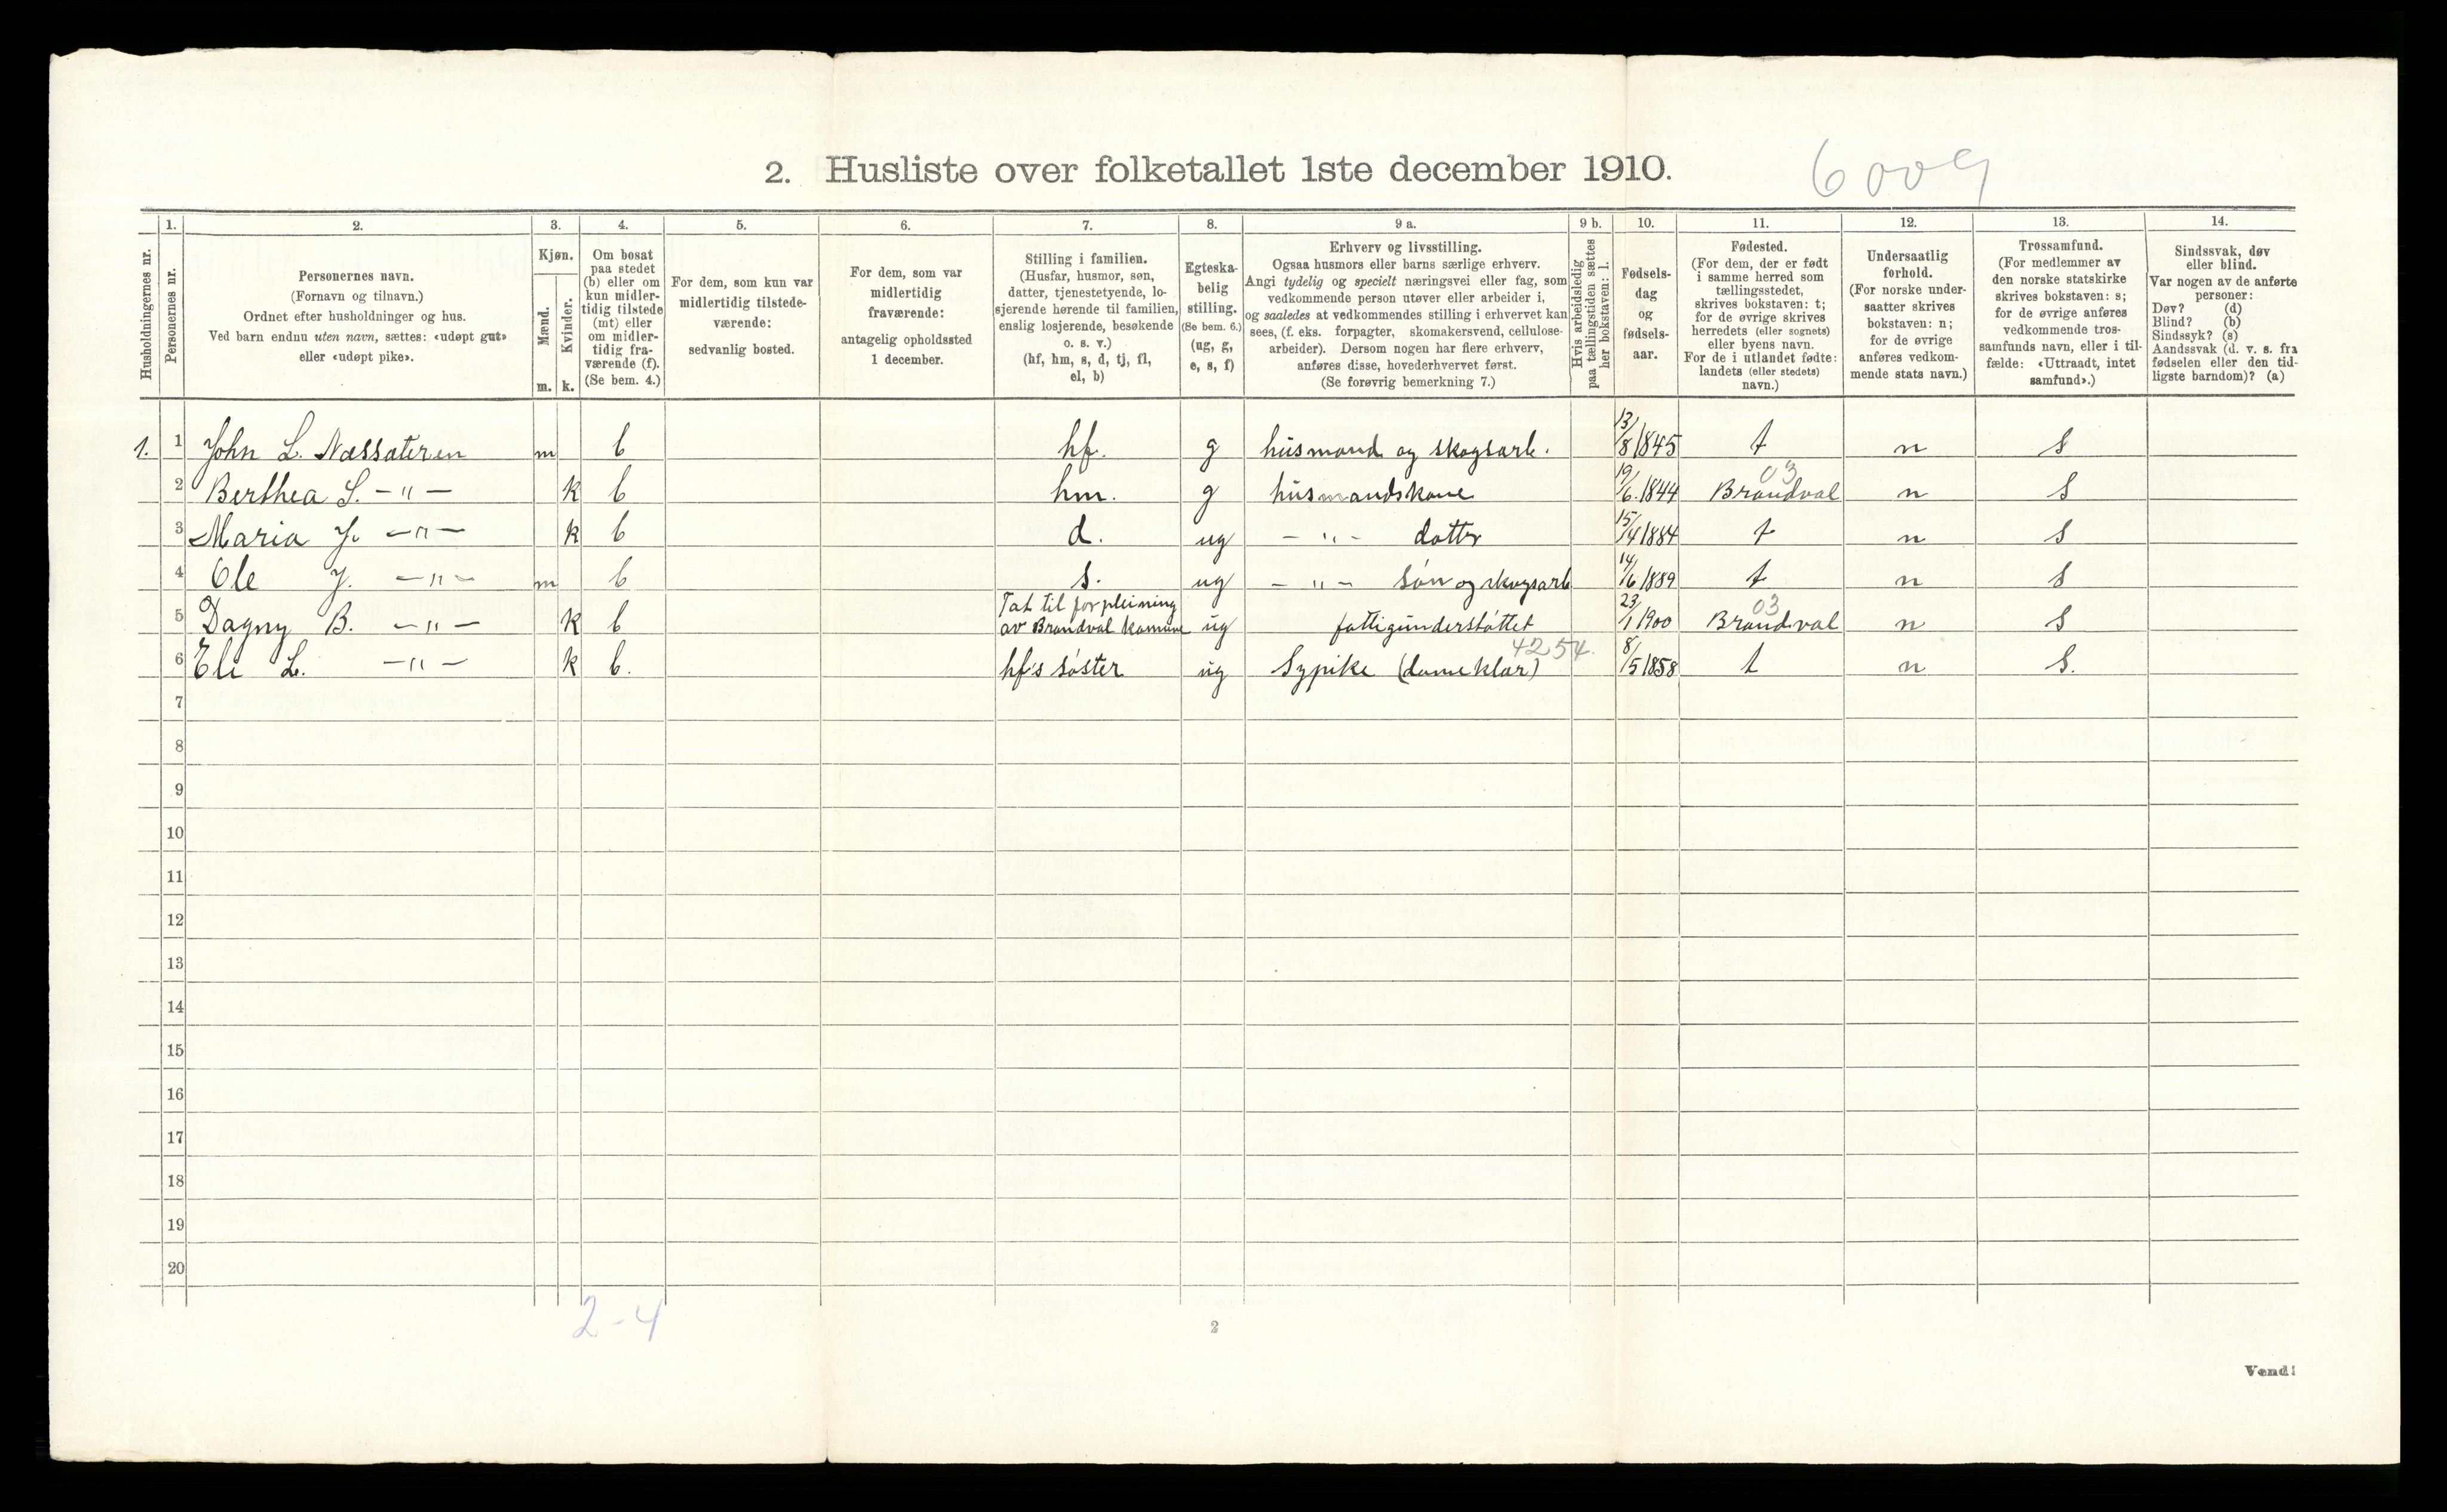 2. Husliste over folketallet 1ste december 1910.
6009
1. 2. 3. 4. 5. 6. 7. 8. 9 a. 9 b. 10. 11. 12. 13. 14.
Husholdningernes nr.
Personernes nr.
Personernes navn.
(Fornavn og tilnavn.)
Ordnet efter husholdninger og hus.
Ved barn endnu uten navn, sættes: «udøpt gut»
eller «udøpt pike».
Kjøn.
Mænd.
Kvinder.
m. k.
Om bosat
paa stedet
(b) eller om
kun midler-
tidig tilstede
(mt) eller
om midler-
tidig fra-
værende (f).
(Se bem. 4.)
For dem, som kun var
midlertidig tilstede-
værende:
sedvanlig bosted.
For dem, som var
midlertidig
fraværende:
antagelig opholdssted
1 december.
Stilling i familien.
(Husfar, husmor, søn,
datter, tjenestetyende, lo-
sjerende hørende til familien,
enslig losjerende, besøkende
o. s. v.)
(hf, hm, s, d, tj, fl,
el, b)
Egteska-
belig
stilling.
(Se bem. 6.)
(ug, g,
e, s, f)
Erhverv og livsstilling.
Ogsaa husmors eller barns særlige erhverv.
Angi tydelig og specielt næringsvei eller fag, som
vedkommende person utøver eller arbeider i,
og saaledes at vedkommendes stilling i erhvervet kan
sees, (f. eks. forpagter, skomakersvend, cellulose-
arbeider). Dersom nogen har flere erhverv,
anføres disse, hovederhvervet først.
(Se forøvrig bemerkning 7.)
Hvis arbeidsledig
paa tællingstiden sættes
her bokstaven: l.
Fødsels-
dag
og
fødsels-
aar.
Fødested.
(For dem, der er født
i samme herred som
tællingsstedet,
skrives bokstaven: t;
for de øvrige skrives
herredets (eller sognets)
eller byens navn.
For de i utlandet fødte:
landets (eller stedets)
navn.)
Undersaatlig
forhold.
(For norske under-
saatter skrives
bokstaven: n;
for de øvrige
anføres vedkom-
mende stats navn.)
Trossamfund.
(For medlemmer av
den norske statskirke
skrives bokstaven: s;
for de øvrige anføres
vedkommende tros-
samfunds navn, eller i til-
fælde: «Uttraadt, intet
samfund».)
Sindssvak, døv
eller blind.
Var nogen av de anførte
personer:
Døv? (d)
Blind? (b)
Sindssyk? (s)
Aandssvak (d. v. s. fra
fødselen eller den tid-
ligste barndom)? (a)
1. 1 John L. Næssæteren m b hf. g husmand og skogsarb. 13/8 1845 t n s
2 Berthea S. -"- k b hm. g husmandskone 19/6. 1844 Brandval 03 n s
3 Maria J. -"- k b d. ug -"- datter 15/4 1884 t n s
4 Ole J. -"- m b s. ug -"- søn og skogsarb 14/6 1889 t n s
5 Dagny B. -"- k b Tat til forpleining
av Brandval komune ug fattigunderstøttet 23/1 1900 Brandval 03 n s
6 Eli L. -"- k b. hf's søster ug Sypike (dameklær) 4254. 8/5 1858 t n s.
7
8
9
10
11
12
13
14
15
16
17
18
19
20
2-4
2
Vend!